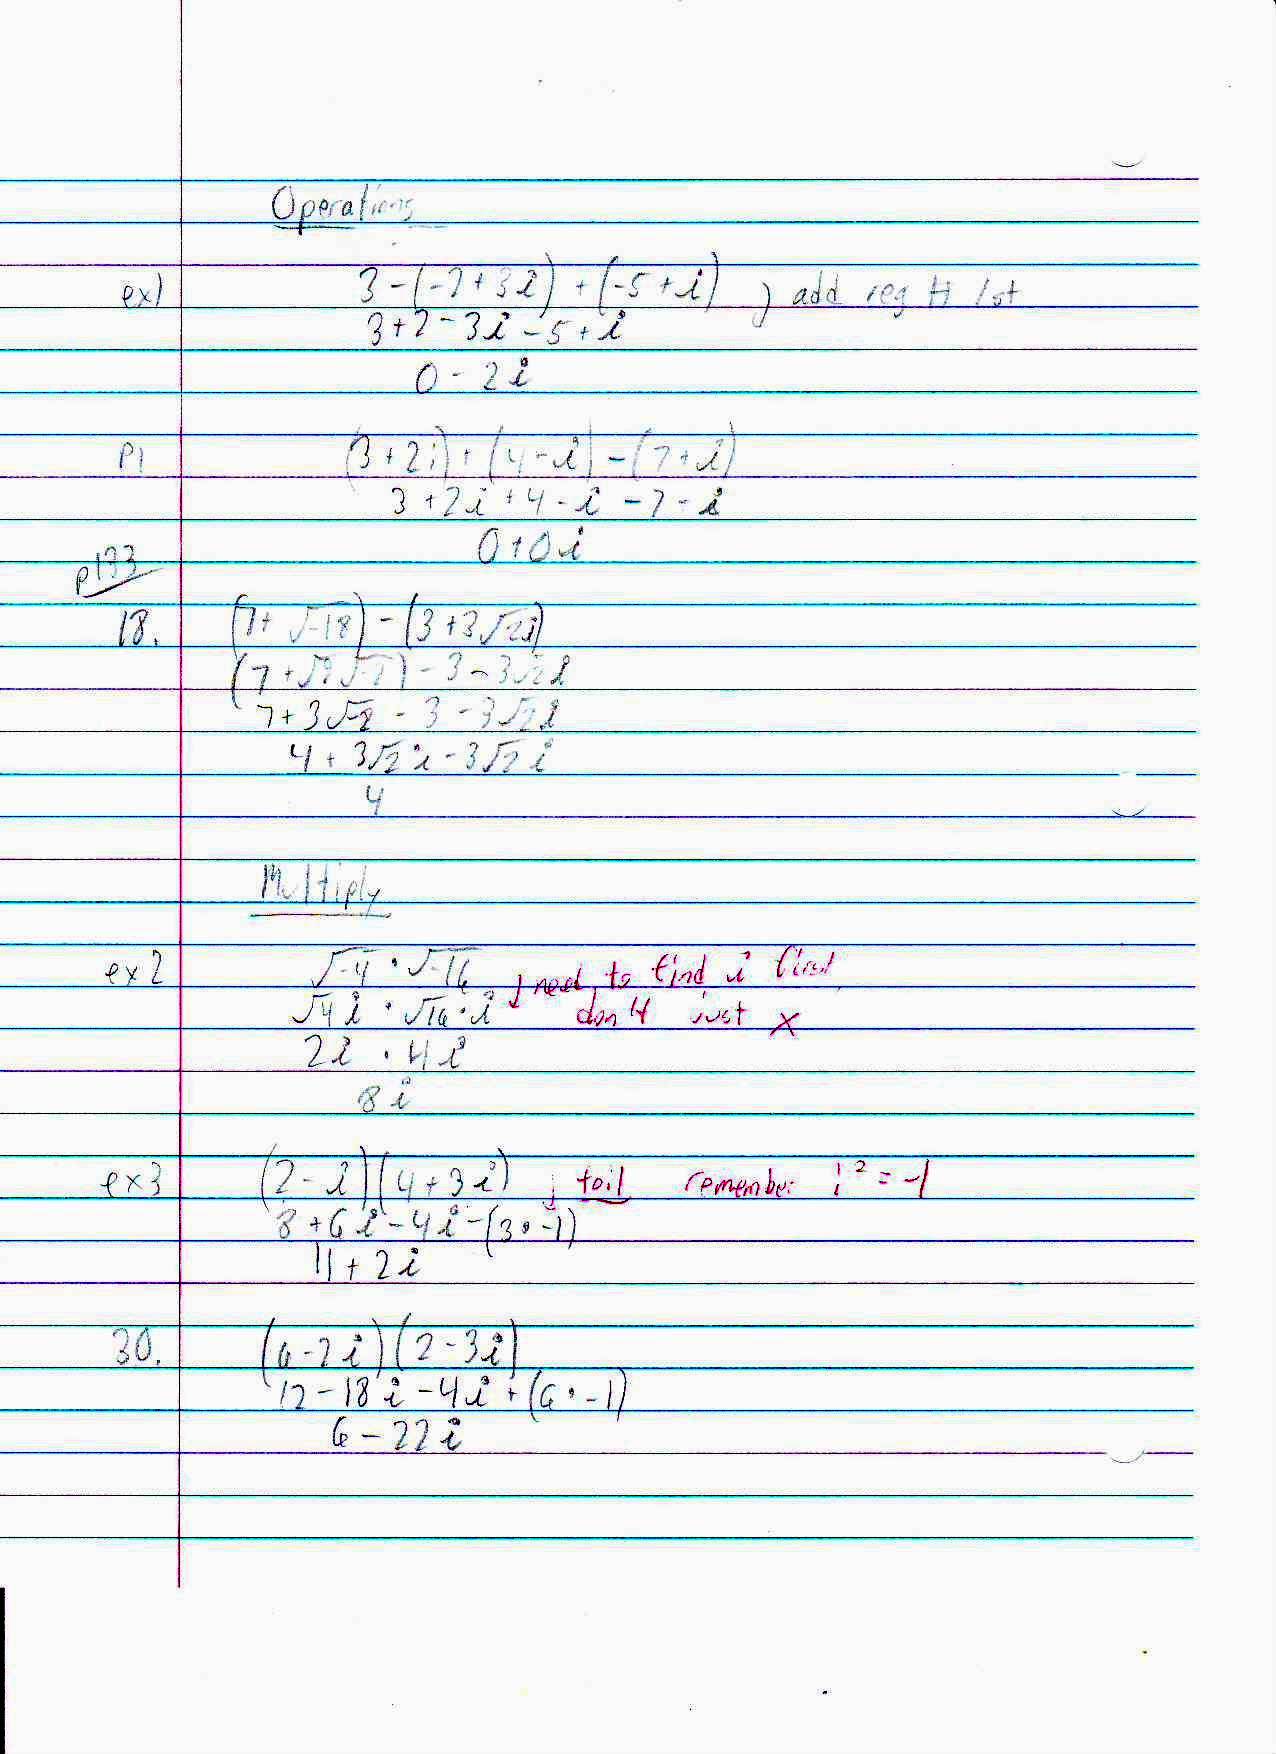 Operations
ex) 3 - (-2 + 3i) + (-5 + i) } add reg # 1st
3 + 2 - 3i - 5 + i
0 - 2i
P1 (3 + 2i) + (4 - i) - (7 + i)
3 + 2i + 4 - i - 7 - i
0 + 0i
p133
18. (7 + √-18) - (3 + 3√2i)
(7 + √9 √-2) - 3 - 3√2i
7 + 3√-2 - 3 - 3√2i
4 + 3√2 i - 3√2 i
4
Multiply
ex2 √-4 · √-16 need to find i first
√4 i · √16 · i don't just X
2i · 4i
8i
ex3 (2 - i)(4 + 3i) foil remember i² = -1
8 + 6i - 4i - (3 · -1)
11 + 2i
30. (6 - 2i)(2 - 3i)
12 - 18i - 4i + (6 · -1)
6 - 22i